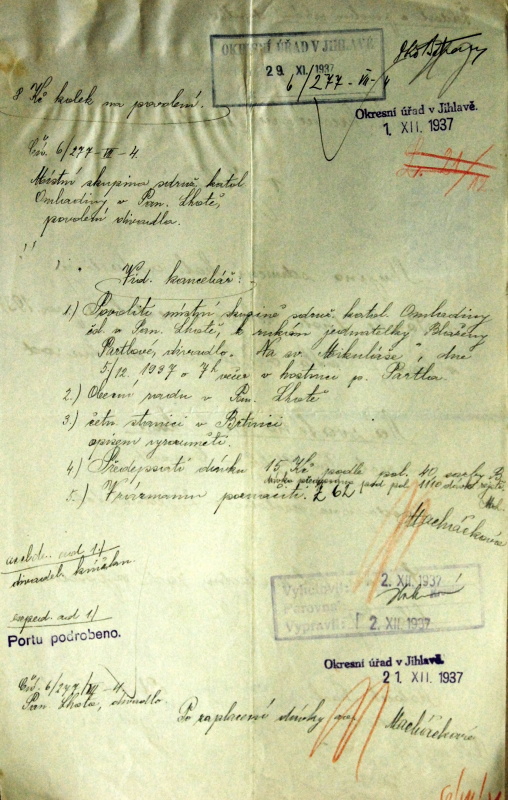 OKRESNÍ ÚŘAD V JIHLAVĚ
29. XI. 1937
6/277-III-4
8 Kč kolek na povolení.
Okresní úřad v Jihlavě.
1. XII. 1937
Čís. 6/277-III-4.
Místní skupina sdruž. katol.
Omladiny v Pan. Lhotě,
povolení divadla.
Vid. kancelář:
1.) Povolíte místní skupině sdruž. katol. Omladiny
v Pan. Lhotě, k rukám jednatelky Blaženy
Pártlové, divadlo „Na sv. Mikuláše“, dne
5/12. 1937 o 7h večer v hostinci p. Pártla.
2.) Obecní radu v Pan. Lhotě
3.) četn. stanici v Brtnici
opisem vyrozuměti.
4.) Předepsati dávku 15 Kč podle pol. 40 sazby
pod pol. 1110
5.) poznačiti. 262
Macháčková
ad 1)
divadel.
exped. ad 1)
Portu podrobeno.
Vyhotovil: 2. XII. 1937
Porovnal
Vypravil: 2. XII. 1937
Okresní úřad v Jihlavě.
21. XII. 1937
Čís. 6/277/III-4.
Pan. Lhota, divadlo.
Po zaplacení dávky
Macháčková